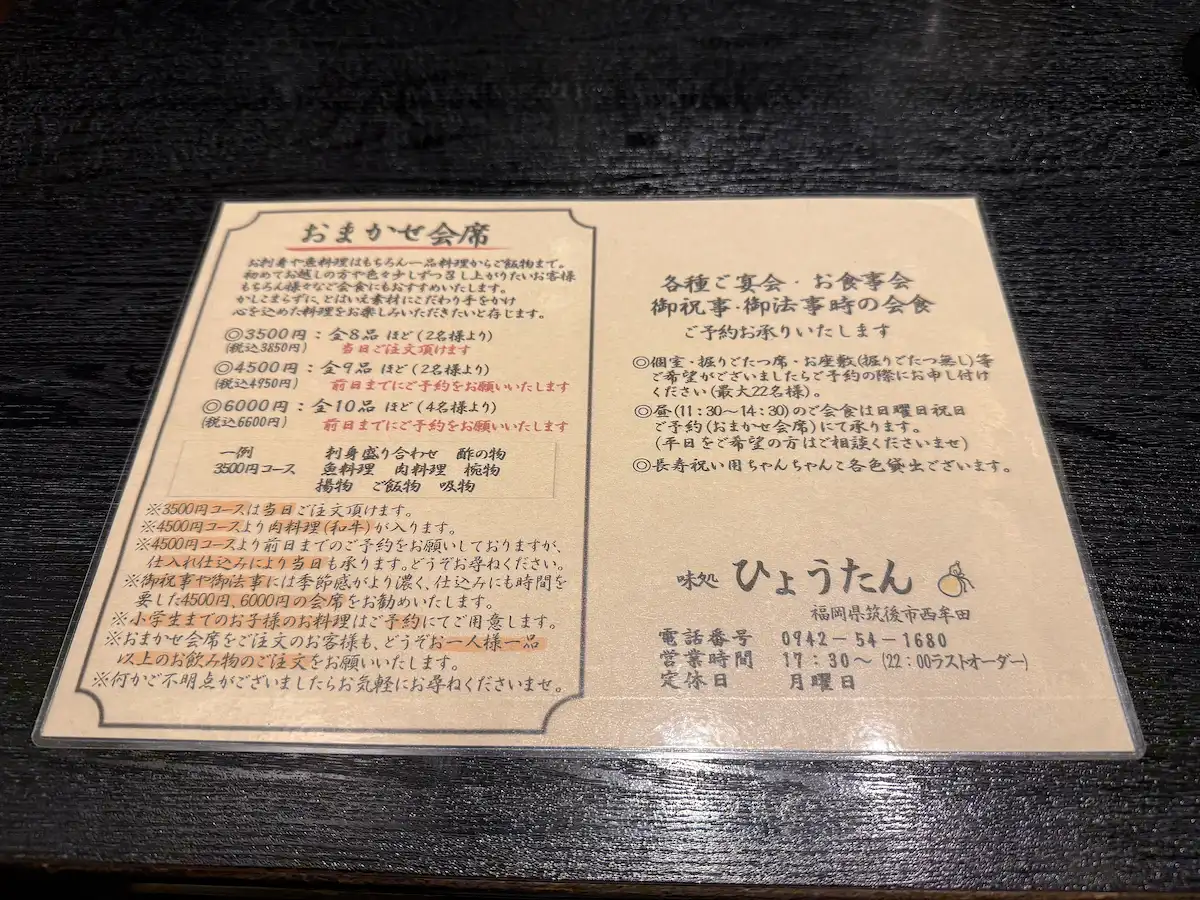 おまかせ会席
お刺身や魚料理はもちろん一品料理からご飯物まで。
初めてお越しの方や色々少しずつ召し上がりたいお客様
もちろん様々なご会食にもおすすめいたします。
かしこまらずに、とはいえ素材にこだわり手をかけ
心を込めた料理をお楽しみいただきたいと存じます。
◎3500円：全8品 ほど(2名様より)
(税込3850円) 当日ご注文頂けます
◎4500円：全9品 ほど(2名様より)
(税込4950円) 前日までにご予約をお願いいたします
◎6000円：全10品 ほど(4名様より)
(税込6600円) 前日までにご予約をお願いいたします
一例 刺身盛り合わせ 酢の物
3500円コース 魚料理 肉料理 椀物
揚物 ご飯物 吸物
※3500円コースは当日ご注文頂けます。
※4500円コースより肉料理(和牛)が入ります。
※4500円コースより前日までのご予約をお願いしておりますが、
仕入れ仕込みにより当日も承ります。どうぞお尋ねください。
※御祝事や御法事には季節感がより濃く、仕込みにも時間を
要した4500円、6000円の会席をお勧めいたします。
※小学生までのお子様のお料理はご予約にてご用意します。
※おまかせ会席をご注文のお客様も、どうぞお一人様一品
以上のお飲み物のご注文をお願いいたします。
※何かご不明点がございましたらお気軽にお尋ねくださいませ。
各種ご宴会・お食事会
御祝事・御法事時の会食
ご予約お承りいたします
◎個室・掘りごたつ席・お座敷(掘りごたつ無し)等
ご希望がございましたらご予約の際にお申し付け
ください(最大22名様)。
◎昼(11：30～14：30)のご会食は日曜日祝日
ご予約(おまかせ会席)にて承ります。
(平日をご希望の方はご相談くださいませ)
◎長寿祝い用ちゃんちゃんこ各色貸出ございます。
味処 ひょうたん
福岡県筑後市西牟田
電話番号 0942－54－1680
営業時間 17：30～(22：00ラストオーダー)
定休日 月曜日